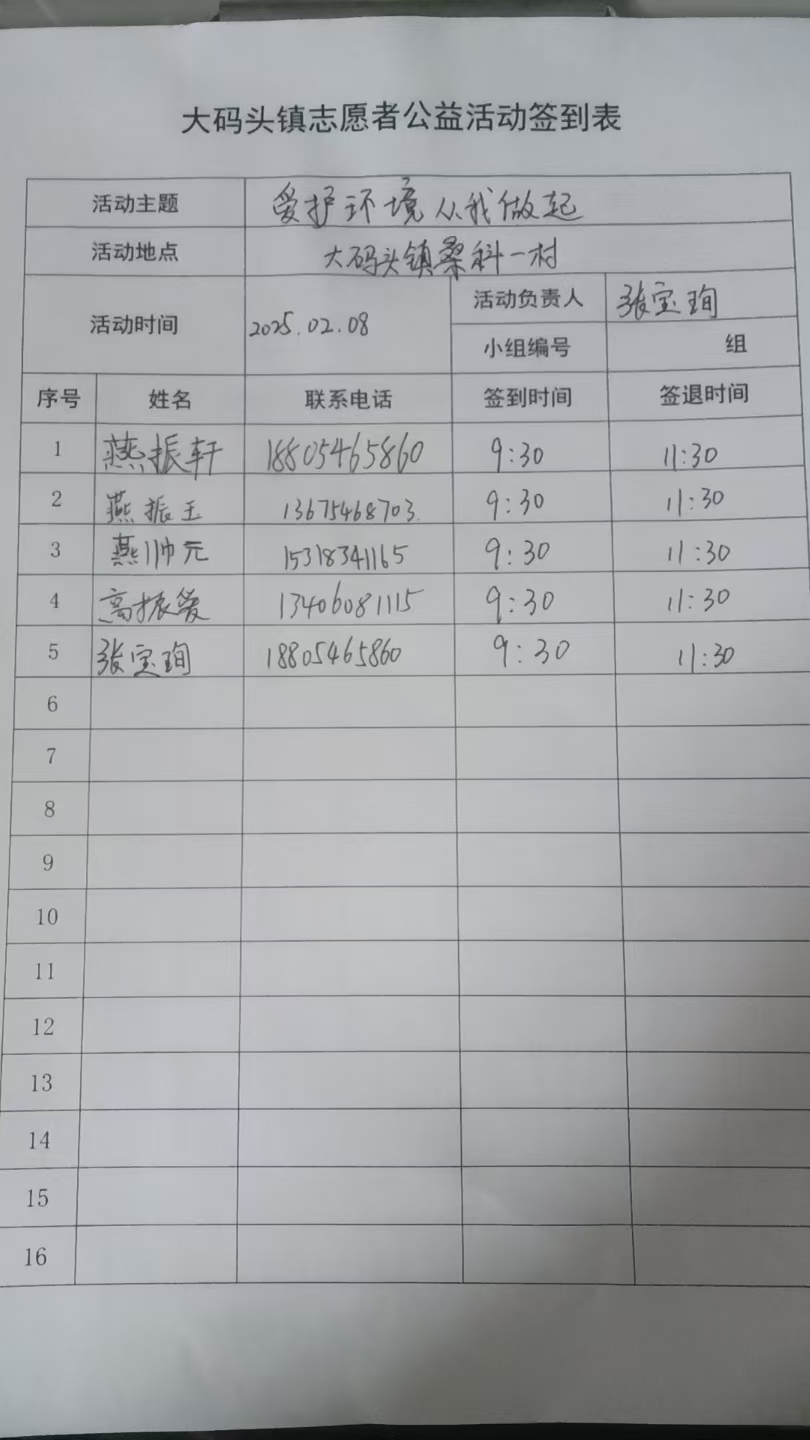 大码头镇志愿者公益活动签到表
活动主题 爱护环境从我做起
活动地点 大码头镇桑科一村
活动时间 2025.02.08 活动负责人 张宝珣
小组编号 组
序号 姓名 联系电话 签到时间 签退时间
1 燕振轩 18805465860 9:30 11:30
2 燕振玉 13675468703. 9:30 11:30
3 燕帅元 15318341165 9:30 11:30
4 高振爱 13406081115 9:30 11:30
5 张宝珣 18805465860 9:30 11:30
6
7
8
9
10
11
12
13
14
15
16